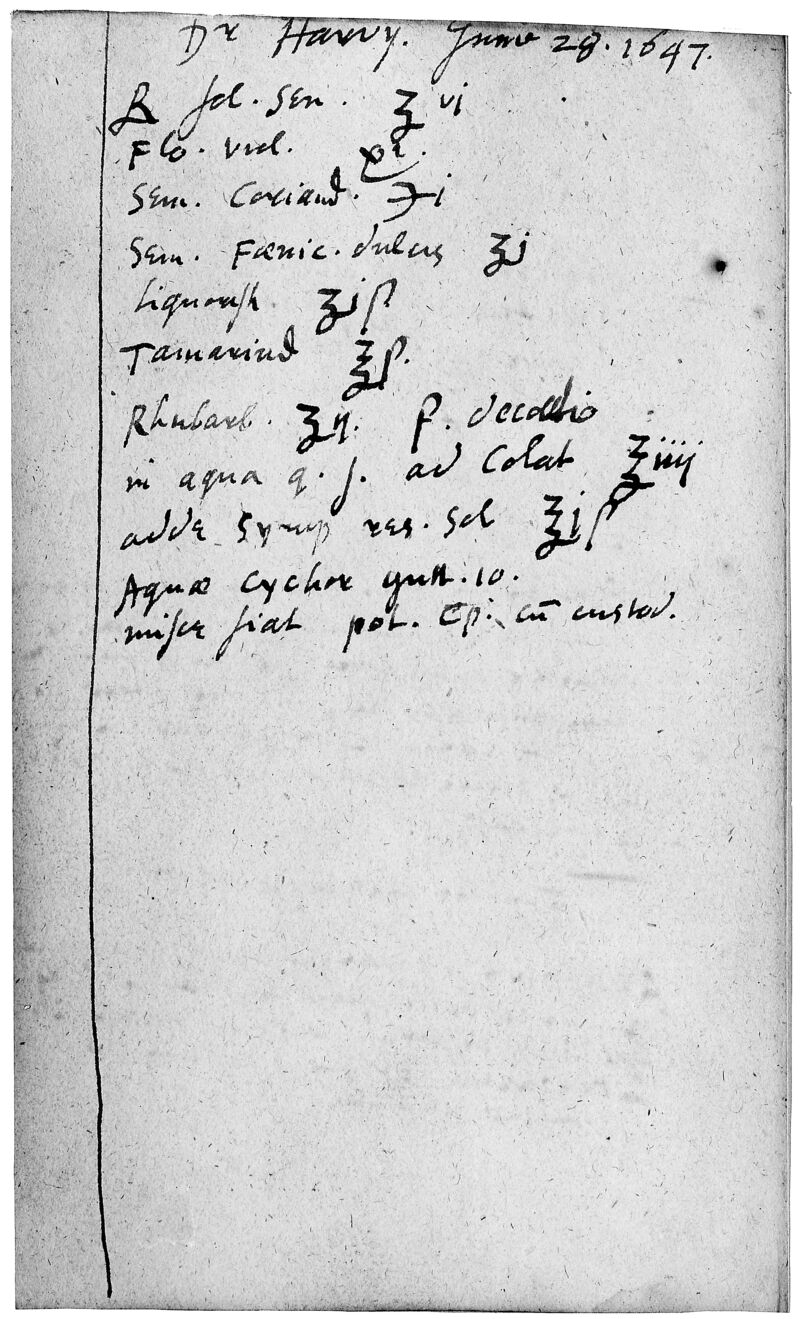 Dr Harvy. June 28. 1647.
℞ fol. Sen. ʒ vi
Flo. viol.
Sem. Coriand. ℈ i
Sem. Fænic. dulcis ʒj
Liquorish ʒjß
Tamarind ℥ß.
Rhubarb. ʒij. f. decoctio
in aqua q. s. ad Colat ℥iiij
adde Syrup res. Sol ℥jß
Aquæ Cychor gutt. 10.
misce fiat pot. Cp. cū custod.